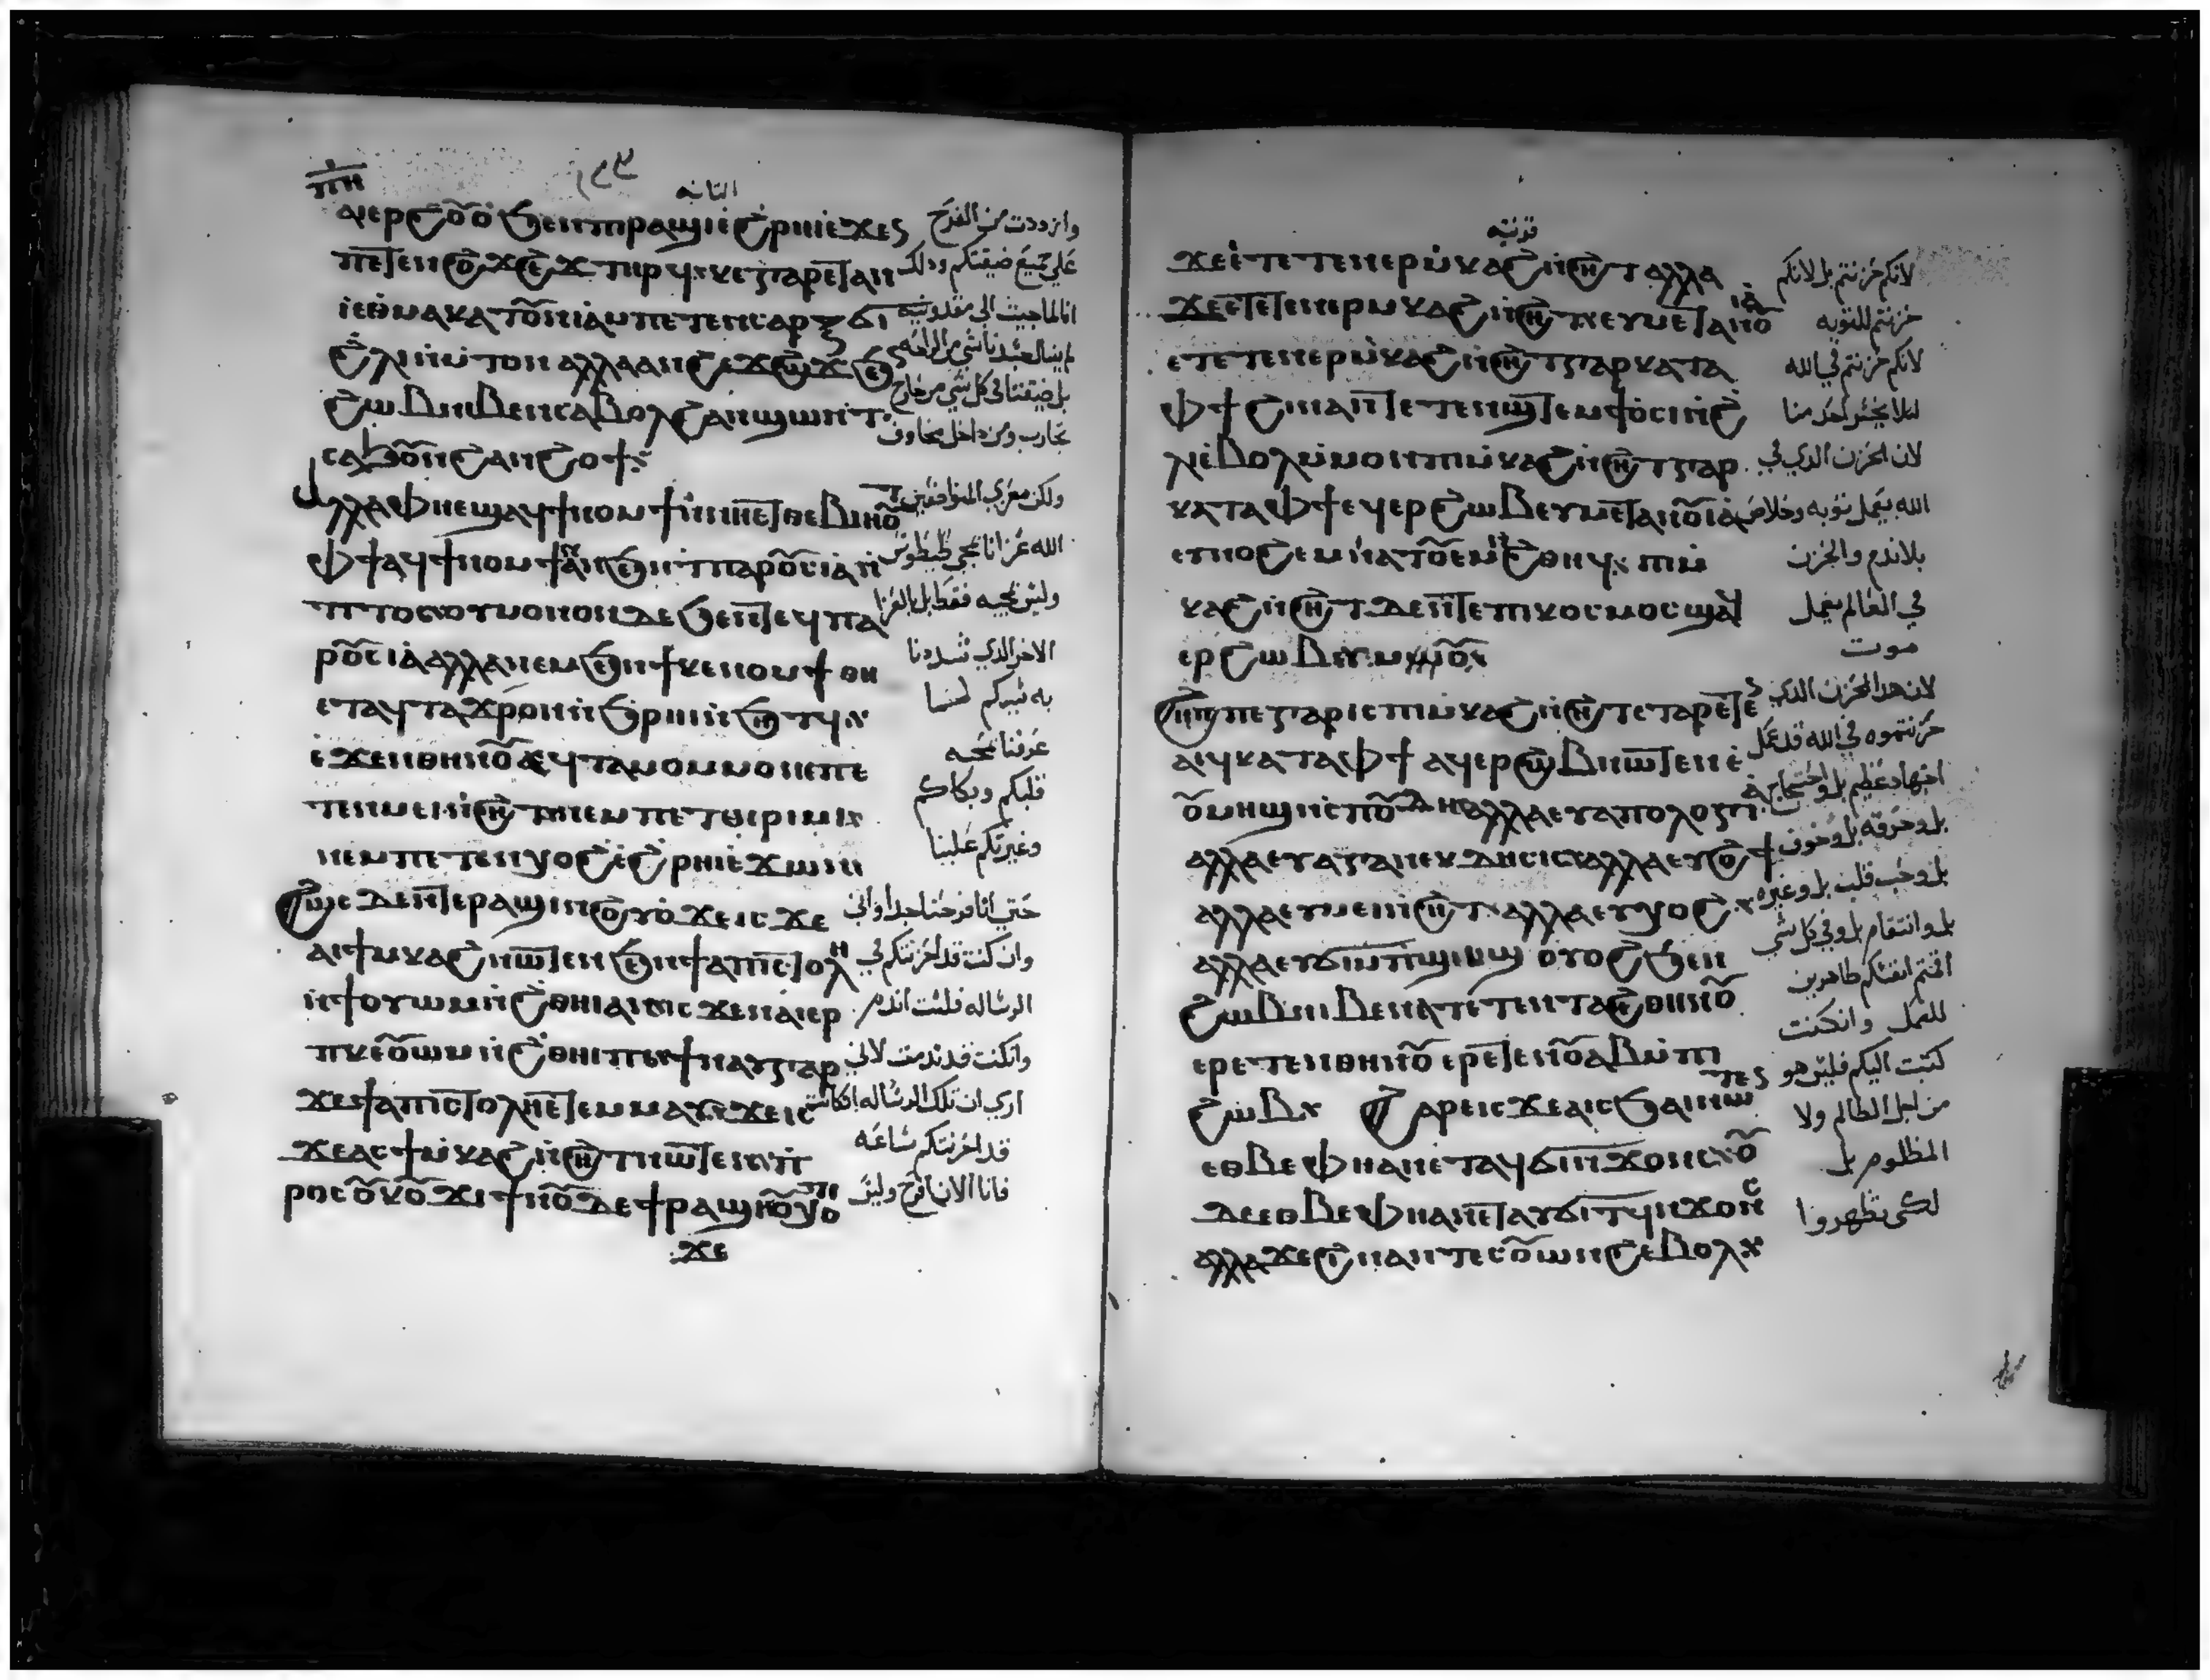 ⲡⲏ
الثانيه
ⲁⲓⲉⲣϩⲟⲩⲟ ϧⲉⲛⲡⲣⲁϣⲓ ⲉϩⲣⲏⲓ ⲉϫⲉⲛ
ⲡⲉⲧⲉⲛϩⲟϫϩⲉϫ ⲧⲏⲣϥ ⲕⲉⲅⲁⲣ ⲉⲧⲁⲛ
ⲓ ⲉⲑⲙⲁⲕⲉⲇⲟⲛⲓⲁ ⲙⲡⲉⲧⲉⲛⲥⲁⲣⲝ ϭⲓ
ⲉϩⲗⲓ ⲛⲙⲧⲟⲛ ⲁⲗⲗⲁ ⲁⲛϩⲉϫϩⲱϫ ϧⲉⲛ
ϩⲱⲃ ⲛⲓⲃⲉⲛ ⲥⲁⲃⲟⲗ ϩⲁⲛϣⲱⲛⲧ
ⲥⲁϧⲟⲩⲛ ϩⲁⲛϩⲟϯ
ⲁⲗⲗⲁ ⲫⲏ ⲉϣⲁϥϯⲛⲟⲙϯ ⲛⲛⲏ ⲉⲧⲑⲉⲃⲓⲏⲟⲩⲧ
ⲫϯ ⲁϥϯⲛⲟⲙϯ ⲛⲁⲛ ϧⲉⲛ ⲧⲡⲁⲣⲟⲩⲥⲓⲁ ⲛ
ⲧⲓⲧⲟⲥ ⲟⲩ ⲙⲟⲛⲟⲛ ⲇⲉ ϧⲉⲛ ⲧⲉϥⲡⲁ
ⲣⲟⲩⲥⲓⲁ ⲁⲗⲗⲁ ⲛⲉⲙ ϧⲉⲛ ϯⲕⲉⲛⲟⲙϯ ⲑⲏ
ⲉⲧⲁϥⲧⲁϫⲣⲟ ⲛϧⲣⲏⲓ ⲛϧⲏⲧϥ
ⲉϫⲉⲛ ⲑⲏⲛⲟⲩ ⲉϥⲧⲁⲙⲟ ⲙⲙⲟⲛ ⲉⲡⲉ
ⲧⲉⲛⲙⲉⲓ ⲛϩⲏⲧ ⲛⲉⲙ ⲡⲉⲧⲉⲛⲣⲓⲙⲓ
ⲛⲉⲙ ⲡⲉⲧⲉⲛⲭⲟϩ ⲉϩⲣⲏⲓ ⲉϫⲱⲛ
ϩⲱⲥⲇⲉ ⲛⲧⲉⲣⲁϣⲓ ⲛϩⲟⲩⲟ ϫⲉ ⲓⲥϫⲉ
ⲁⲓϯⲙⲕⲁϩ ⲛⲱⲧⲉⲛ ϧⲉⲛ ϯⲉⲡⲓⲥⲧⲟⲗⲏ
ⲛϯⲟⲩⲱⲙ ⲛϩⲑⲏⲓ ⲁⲛ ⲓⲥϫⲉ ⲛⲁⲓⲉⲣ
ⲡⲕⲉⲟⲩⲱⲙ ⲛϩⲑⲏⲓ ⲡⲉ ϯⲛⲁⲩ ⲅⲁⲣ
ϫⲉ ϯⲉⲡⲓⲥⲧⲟⲗⲏ ⲉⲧⲉⲙⲙⲁⲩ ϫⲉ ⲓⲥ
ϫⲉ ⲁⲥϯⲙⲕⲁϩ ⲛϩⲏⲧ ⲛⲱⲧⲉⲛ
ⲡⲣⲟⲥ ⲟⲩⲕⲟⲩϫⲓ ϯⲛⲟⲩ ⲇⲉ ϯⲣⲁϣⲓ ⲟⲩⲭⲟ
ϫⲉ
وازددت من الفرح
علي جميع ضيقتكم وذلك
انا لما جيت الي مقدونيه
لم ينال جسدنا شي من الراحه
بل ضيقنا في كل شي من خارج
تجارب ومن داخل مخاوف
ولكن معزي المتواضعين
الله عزانا بمجي طيطوس
وليس بمجيه فقط بل بالعزا
الاخر الذي تشددنا
به
عرفنا بمحبه
قلبكم وبكاكم
وغيرتكم علينا
حتي اننا فرحنا جدا واني
وان كنت قد احزنتكم في
الرساله فلست اندم
وانكنت قد ندمت لاني
اري ان تلك الرساله وانكانت
قد احزنتكم ساعه
فانا الان افرح وليس
قرنتيه
ϫⲉ ⲉⲧⲉⲧⲉⲛⲉⲣⲙⲕⲁϩ ⲛϩⲏⲧ ⲁⲗⲗⲁ
ϫⲉ ⲉⲧⲉⲧⲉⲛⲉⲣⲙⲕⲁϩ ⲛϩⲏⲧ ⲉⲩⲙⲉⲧⲁⲛⲟⲓⲁ
ⲉⲧⲉⲧⲉⲛⲉⲣⲙⲕⲁϩ ⲛϩⲏⲧ ⲅⲁⲣ ⲕⲁⲧⲁ
ⲫϯ ϩⲓⲛⲁ ⲛⲧⲉⲧⲉⲛϣⲧⲉⲙϯⲟⲥⲓ ⲛϩ
ⲗⲓ ⲉⲃⲟⲗ ⲙⲙⲟⲛ ⲡⲓⲙⲕⲁϩ ⲛϩⲏⲧ ⲅⲁⲣ
ⲕⲁⲧⲁ ⲫϯ ⲉϥⲉⲣϩⲱⲃ ⲉⲩⲙⲉⲧⲁⲛⲟⲓⲁ
ⲉⲡⲛⲟϩⲉⲙ ⲛⲁⲧⲟⲩⲉⲙ ϩⲑⲏϥ ⲡⲓⲙ
ⲕⲁϩ ⲛϩⲏⲧ ⲇⲉ ⲛⲧⲉ ⲡⲓⲕⲟⲥⲙⲟⲥ ϣⲁϥ
ⲉⲣϩⲱⲃ ⲉⲩⲙⲟⲩ
ϩⲏⲡⲡⲉ ⲅⲁⲣ ⲓⲥ ⲡⲓⲙⲕⲁϩ ⲛϩⲏⲧ ⲉⲧⲁⲣⲉⲧⲉⲛ
ⲁⲓϥ ⲕⲁⲧⲁ ⲫϯ ⲁϥⲉⲣϩⲱⲃ ⲛⲱⲧⲉⲛ ⲉ
ⲟⲩⲙⲏϣ ⲛⲥⲡⲟⲩⲇⲏ ⲁⲗⲗⲁ ⲉⲩⲁⲡⲟⲗⲟⲅⲓⲁ
ⲁⲗⲗⲁ ⲉⲩⲁⲅⲁⲛⲉⲕⲇⲏⲥⲓⲥ ⲁⲗⲗⲁ ⲉⲩϩⲟϯ
ⲁⲗⲗⲁ ⲉⲩⲙⲉⲓ ⲛϩⲏⲧ ⲁⲗⲗⲁ ⲉⲩⲭⲟϩ
ⲁⲗⲗⲁ ⲉⲩϭⲓⲙⲡϣⲓϣ ⲟⲩⲟϩ ϧⲉⲛ
ϩⲱⲃ ⲛⲓⲃⲉⲛ ⲁⲧⲉⲧⲉⲛⲧⲁϩⲉ ⲑⲏⲛⲟⲩ
ⲉⲣⲉⲧⲉⲛ ⲑⲏⲛⲟⲩ ⲉⲣⲉⲧⲉⲛⲧⲟⲩⲃ ⲙⲡⲓ
ϩⲱⲃ ϩⲁⲣⲁ ⲓⲥϫⲉ ⲁⲓⲥϧⲁⲓ ⲛⲱⲧⲉⲛ
ⲉⲑⲃⲉ ⲫⲏ ⲁⲛ ⲉⲧⲁϥϭⲓⲛϫⲟⲛⲥ ⲟⲩ
ⲇⲉ ⲉⲑⲃⲉ ⲫⲏ ⲁⲛ ⲉⲧⲁⲩϭⲓⲧϥ ⲛϫⲟⲛⲥ
ⲁⲗⲗⲁ ϫⲉ ϩⲓⲛⲁ ⲛⲧⲉⲥⲟⲩⲱⲛϩ ⲉⲃⲟⲗ
لانكم حزنتم بل لانكم
حزنتم للتوبه
لانكم حزنتم في الله
ليلا يخسر احد منا
لان الحزن الذي في
الله يعمل توبه وخلاص
بلا ندم والحزن
في العالم يعمل
موت
لان هذا الحزن الذي
حزنتموه في الله قد عمل
اجتهاد عظيم بل واحتجاج
بل وحرقه بل وخوف
بل وحب قلب بل وغيره
بل وانتقام بل وفي كل شي
اقمتم انفسكم طاهرين
للعمل وانكنت
كتبت اليكم فليس هو
من اجل الظالم ولا
المظلوم بل
لكي تظهروا